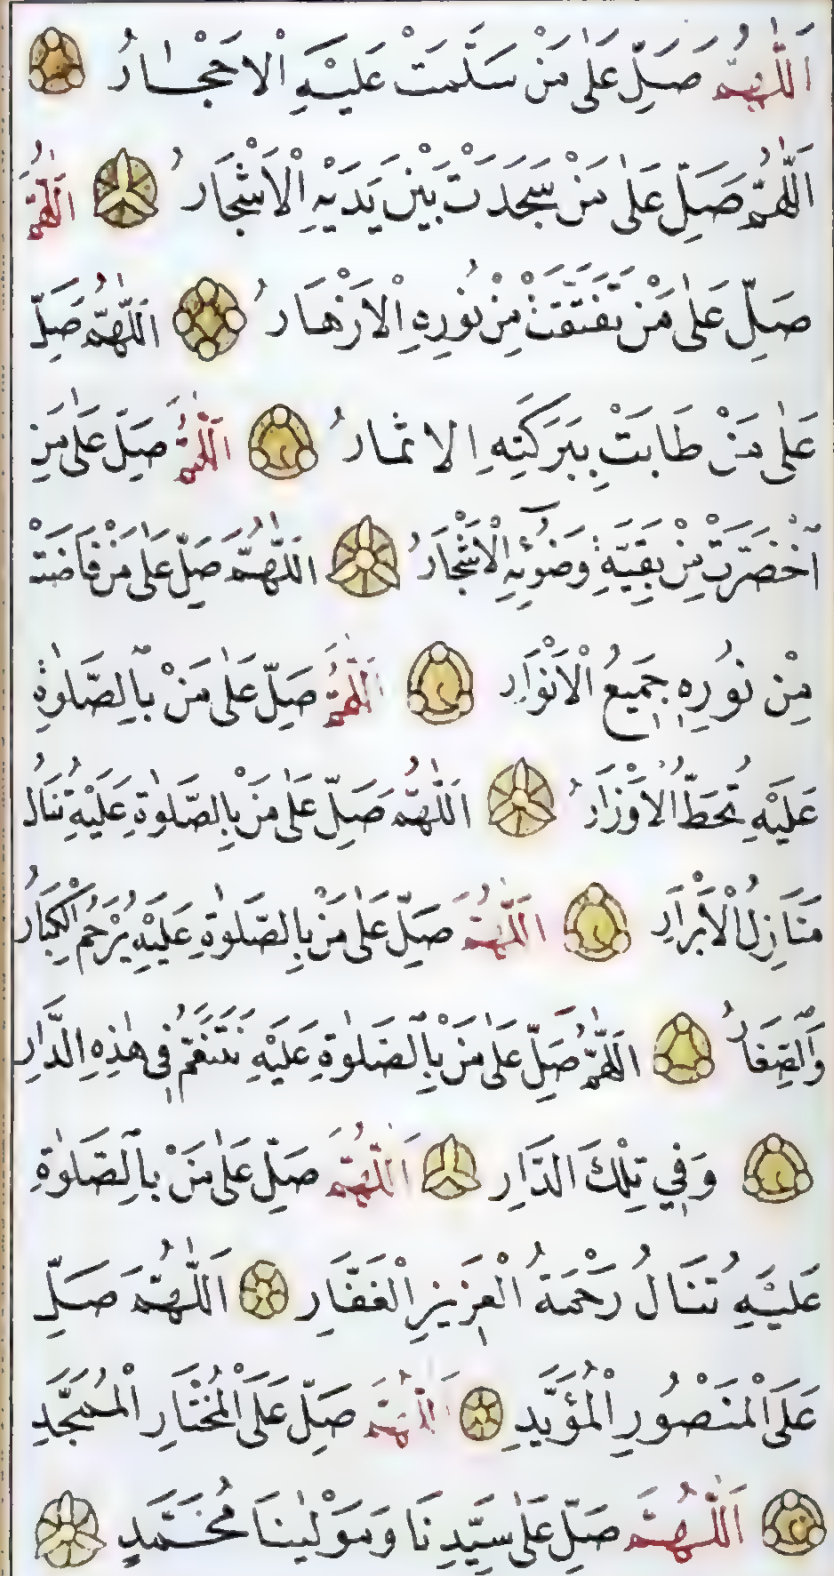 اَللّٰهُمَّ صَلِّ عَلٰى مَنْ سَلَّمَتْ عَلَيْهِ الْاَحْجَارُ
اَللّٰهُمَّ صَلِّ عَلٰى مَنْ سَجَدَتْ بَيْنَ يَدَيْهِ الْاَشْجَارُ اَللّٰهُمَّ
صَلِّ عَلٰى مَنْ تَفَتَّقَتْ مِنْ نُورِهِ الْاَزْهَارُ اَللّٰهُمَّ صَلِّ
عَلٰى مَنْ طَابَتْ بِبَرَكَتِهِ الْاَثْمَارُ اَللّٰهُمَّ صَلِّ عَلٰى مَنِ
اخْضَرَّتْ مِنْ بَقِيَّةِ وَضُوئِهِ الْاَشْجَارُ اَللّٰهُمَّ صَلِّ عَلٰى مَنْ فَاضَتْ
مِنْ نُورِهِ جَمِيعُ الْاَنْوَارِ اَللّٰهُمَّ صَلِّ عَلٰى مَنْ بِالصَّلٰوةِ
عَلَيْهِ تُحَطُّ الْاَوْزَارُ اَللّٰهُمَّ صَلِّ عَلٰى مَنْ بِالصَّلٰوةِ عَلَيْهِ تُنَالُ
مَنَازِلُ الْاَبْرَارِ اَللّٰهُمَّ صَلِّ عَلٰى مَنْ بِالصَّلٰوةِ عَلَيْهِ يُرْحَمُ الْكِبَارُ
وَالصِّغَارُ اَللّٰهُمَّ صَلِّ عَلٰى مَنْ بِالصَّلٰوةِ عَلَيْهِ نَتَنَعَّمُ فِي هٰذِهِ الدَّارِ
وَفِي تِلْكَ الدَّارِ اَللّٰهُمَّ صَلِّ عَلٰى مَنْ بِالصَّلٰوةِ
عَلَيْهِ تُنَالُ رَحْمَةُ الْعَزِيزِ الْغَفَّارِ اَللّٰهُمَّ صَلِّ
عَلَى الْمَنْصُورِ الْمُؤَيَّدِ اَللّٰهُمَّ صَلِّ عَلَى الْمُخْتَارِ الْمُمَجَّدِ
اَللّٰهُمَّ صَلِّ عَلٰى سَيِّدِنَا وَمَوْلٰينَا مُحَمَّدٍ